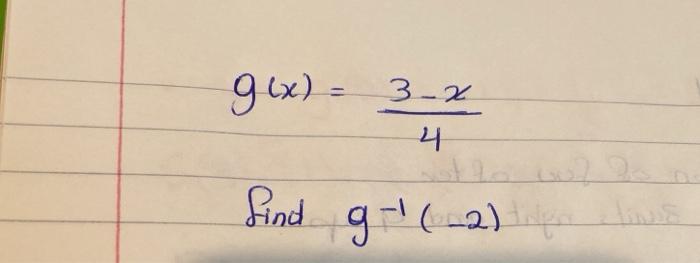 g(x) = 3-x / 4
find g⁻¹(-2)